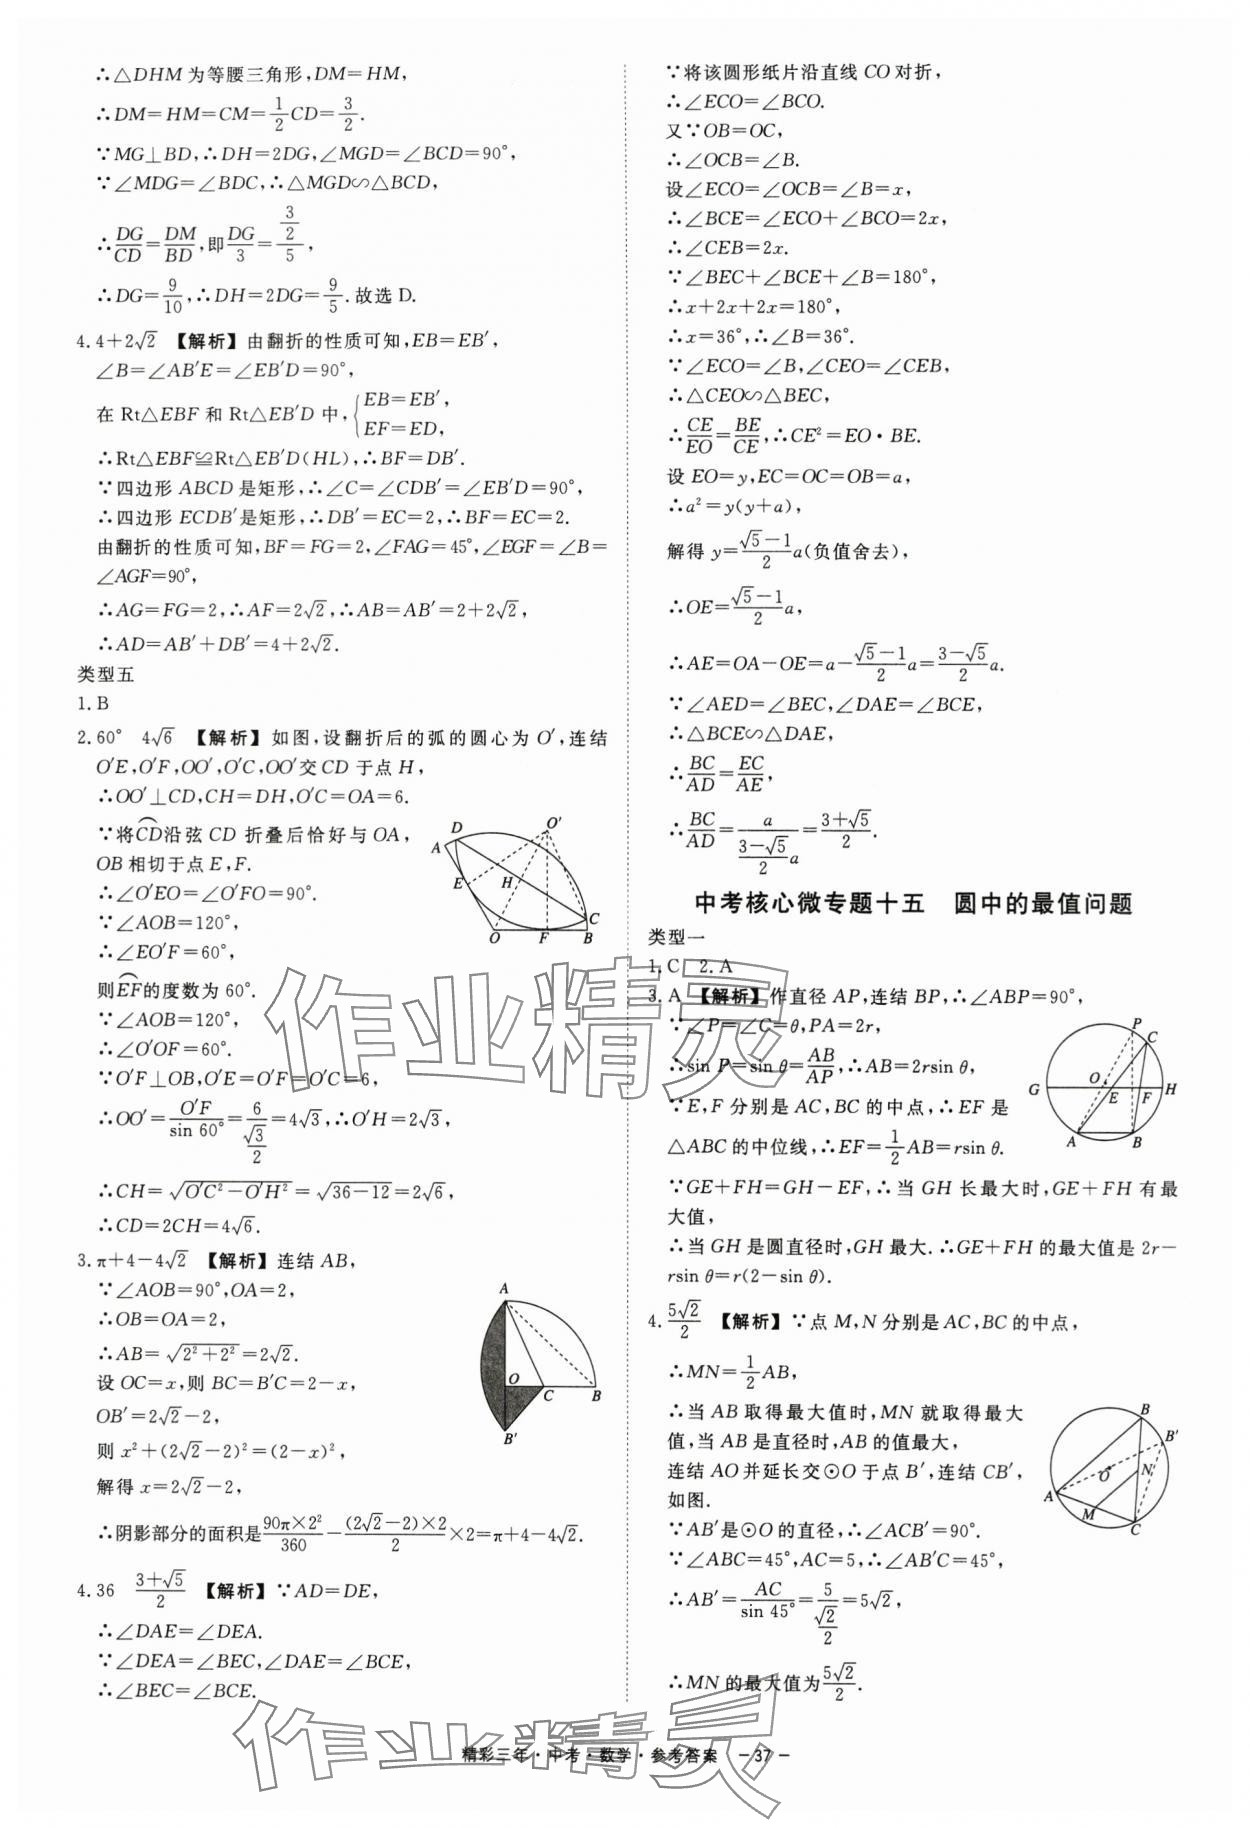 ∴△DHM为等腰三角形,DM=HM,
∴DM=HM=CM=1/2CD=3/2.
∵MG⊥BD,∴DH=2DG,∠MGD=∠BCD=90°,
∵∠MDG=∠BDC,∴△MGD∽△BCD,
∴DG/CD=DM/BD,即DG/3=(3/2)/5,
∴DG=9/10,∴DH=2DG=9/5.故选D.
4.4+2√2 【解析】由翻折的性质可知,EB=EB′,
∠B=∠AB′E=∠EB′D=90°,
在Rt△EBF和Rt△EB′D中,{EB=EB′,
EF=ED,
∴Rt△EBF≌Rt△EB′D(HL),∴BF=DB′.
∵四边形ABCD是矩形,∴∠C=∠CDB′=∠EB′D=90°,
∴四边形ECDB′是矩形,∴DB′=EC=2,∴BF=EC=2.
由翻折的性质可知,BF=FG=2,∠FAG=45°,∠EGF=∠B=
∠AGF=90°,
∴AG=FG=2,∴AF=2√2,∴AB=AB′=2+2√2,
∴AD=AB′+DB′=4+2√2.
类型五
1.B
2.60° 4√6 【解析】如图,设翻折后的弧的圆心为O′,连结
O′E,O′F,OO′,O′C,OO′交CD于点H,
∴OO′⊥CD,CH=DH,O′C=OA=6.
∵将⌒CD沿弦CD折叠后恰好与OA,
OB相切于点E,F.
∴∠O′EO=∠O′FO=90°.
∵∠AOB=120°,
∴∠EO′F=60°,
则⌒EF的度数为60°.
∵∠AOB=120°,
∴∠O′OF=60°.
∵O′F⊥OB,O′E=O′F=O′C=6,
∴OO′=O′F/sin 60°=6/(√3/2)=4√3,∴O′H=2√3,
∴CH=√(O′C²-O′H²)=√(36-12)=2√6,
∴CD=2CH=4√6.
D
O′
A
E
H
C
O
F
B
3.π+4-4√2 【解析】连结AB,
∵∠AOB=90°,OA=2,
∴OB=OA=2,
∴AB=√(2²+2²)=2√2.
设OC=x,则BC=B′C=2-x,
OB′=2√2-2,
则x²+(2√2-2)²=(2-x)²,
解得x=2√2-2,
∴阴影部分的面积是90π×2²/360-(2√2-2)×2/2×2=π+4-4√2.
A
O
C
B
B′
4.36 (3+√5)/2 【解析】∵AD=DE,
∴∠DAE=∠DEA.
∵∠DEA=∠BEC,∠DAE=∠BCE,
∴∠BEC=∠BCE.
∵将该圆形纸片沿直线CO对折,
∴∠ECO=∠BCO.
又∵OB=OC,
∴∠OCB=∠B.
设∠ECO=∠OCB=∠B=x,
∴∠BCE=∠ECO+∠BCO=2x,
∴∠CEB=2x.
∵∠BEC+∠BCE+∠B=180°,
∴x+2x+2x=180°,
∴x=36°,∴∠B=36°.
∵∠ECO=∠B,∠CEO=∠CEB,
∴△CEO∽△BEC,
∴CE/EO=BE/CE,∴CE²=EO·BE.
设EO=y,EC=OC=OB=a,
∴a²=y(y+a),
解得y=(√5-1)/2a(负值舍去),
∴OE=(√5-1)/2a,
∴AE=OA-OE=a-(√5-1)/2a=(3-√5)/2a.
∵∠AED=∠BEC,∠DAE=∠BCE,
∴△BCE∽△DAE,
∴BC/AD=EC/AE,
∴BC/AD=a/((3-√5)/2a)=(3+√5)/2.
中考核心微专题十五 圆中的最值问题
类型一
1.C 2.A
3.A 【解析】作直径AP,连结BP,∴∠ABP=90°,
∵∠P=∠C=θ,PA=2r,
∴sin P=sin θ=AB/AP,∴AB=2rsin θ,
∵E,F分别是AC,BC的中点,∴EF是
△ABC的中位线,∴EF=1/2AB=rsin θ.
∵GE+FH=GH-EF,∴当GH长最大时,GE+FH有最
大值,
∴当GH是圆直径时,GH最大.∴GE+FH的最大值是2r-
rsin θ=r(2-sin θ).
P
C
O
G
E
F
H
A
B
4.5√2/2 【解析】∵点M,N分别是AC,BC的中点,
∴MN=1/2AB,
∴当AB取得最大值时,MN就取得最大
值,当AB是直径时,AB的值最大,
连结AO并延长交⊙O于点B′,连结CB′,
如图.
∵AB′是⊙O的直径,∴∠ACB′=90°.
∵∠ABC=45°,AC=5,∴∠AB′C=45°,
∴AB′=AC/sin 45°=5/(√2/2)=5√2,
∴MN的最大值为5√2/2.
B
B′
O
N
A
M
C
作业精灵
作业精灵
精彩三年·中考·数学·参考答案 -37-